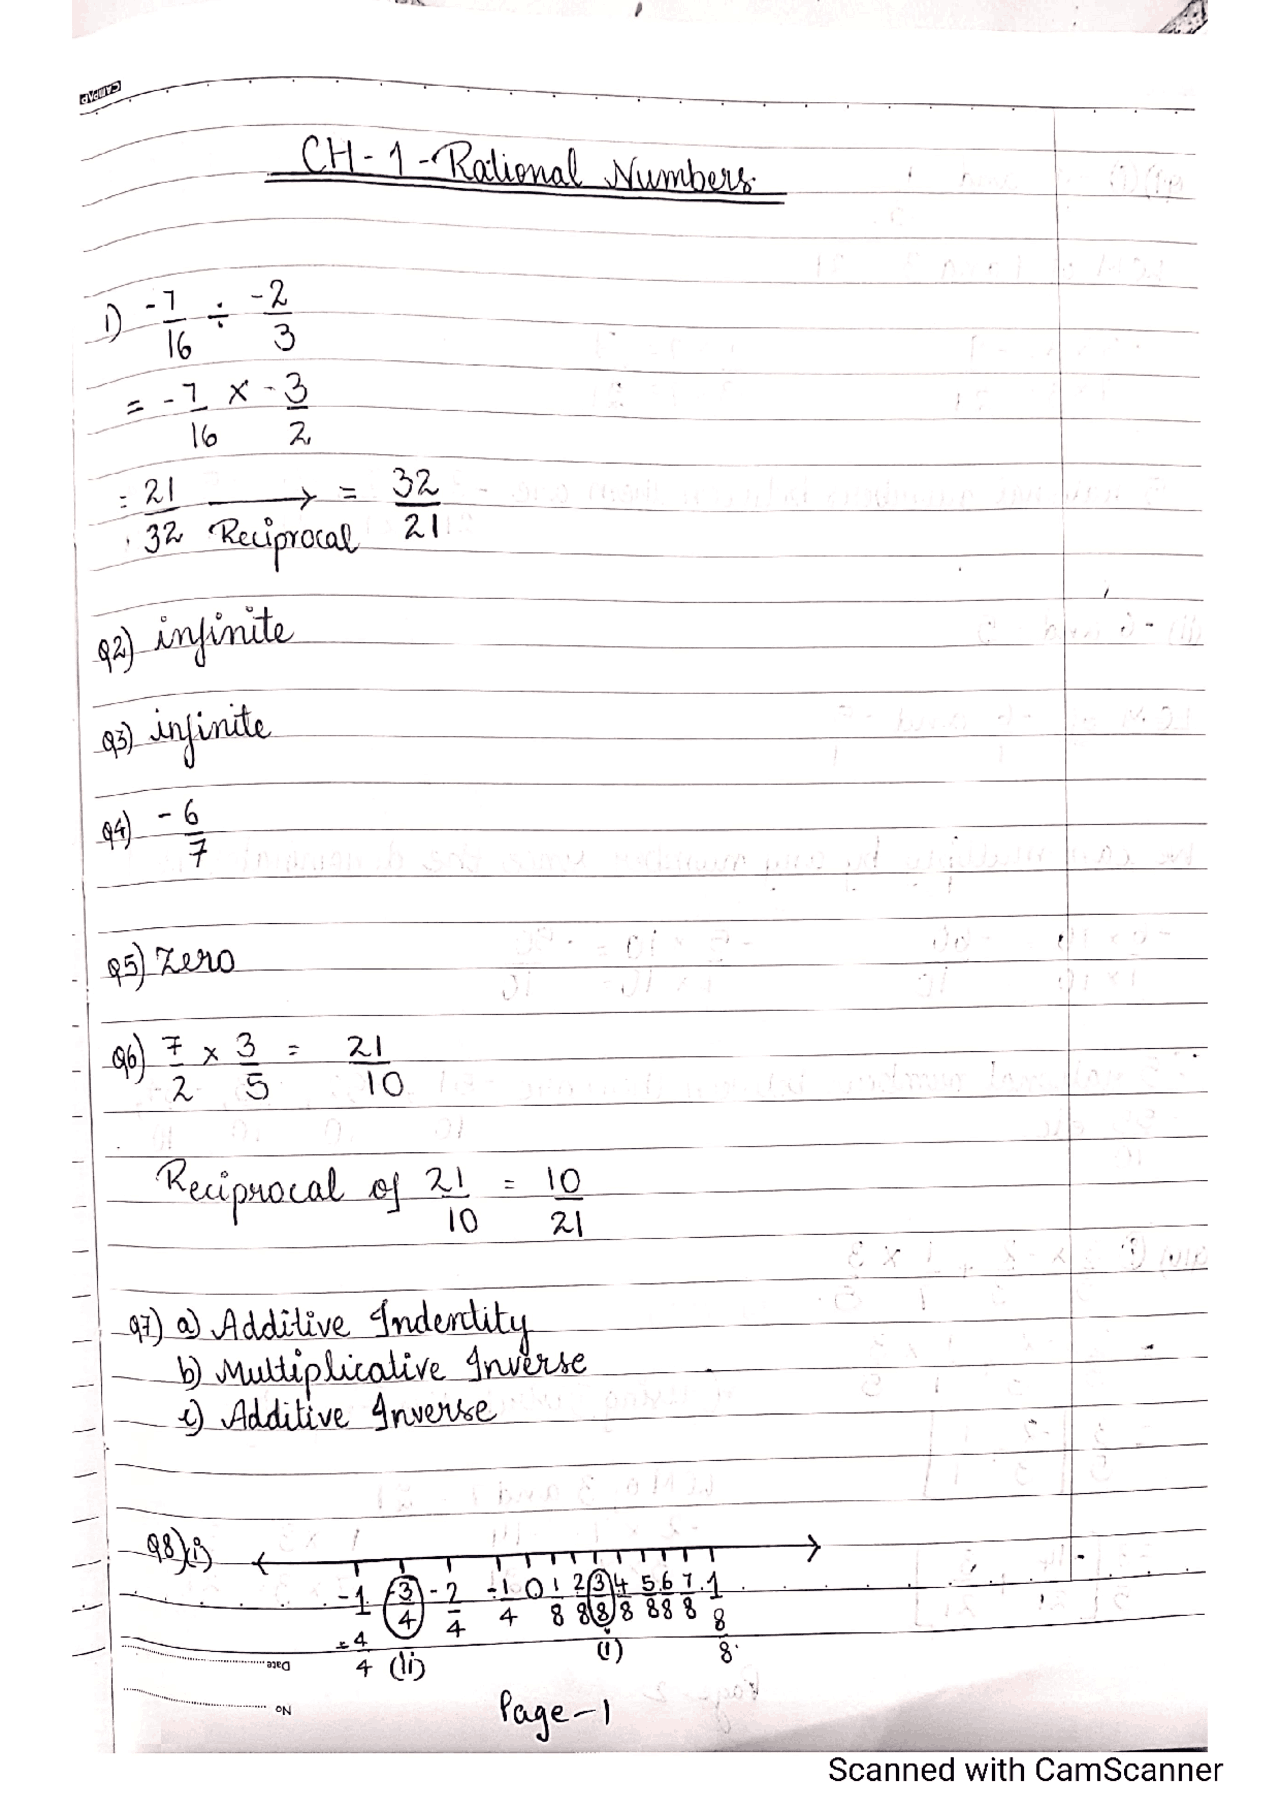 CAMPAP
CH-1-Rational Numbers.
1) -7/16 ÷ -2/3
= -7/16 × -3/2
= 21/32 ⟶ Reciprocal = 32/21
Q2) infinite
Q3) infinite
Q4) -6/7
Q5) Zero
Q6) 7/2 × 3/5 = 21/10
Reciprocal of 21/10 = 10/21
Q7) a) Additive Indentity
b) Multiplicative Inverse
c) Additive Inverse
Q8)(i)
-1 -3/4 -2/4 -1/4 0 1/8 2/8 3/8 4/8 5/8 6/8 7/8 1
= 4/4 (ii) (i) 8/8.
Date
No
Page-1
Scanned with CamScanner